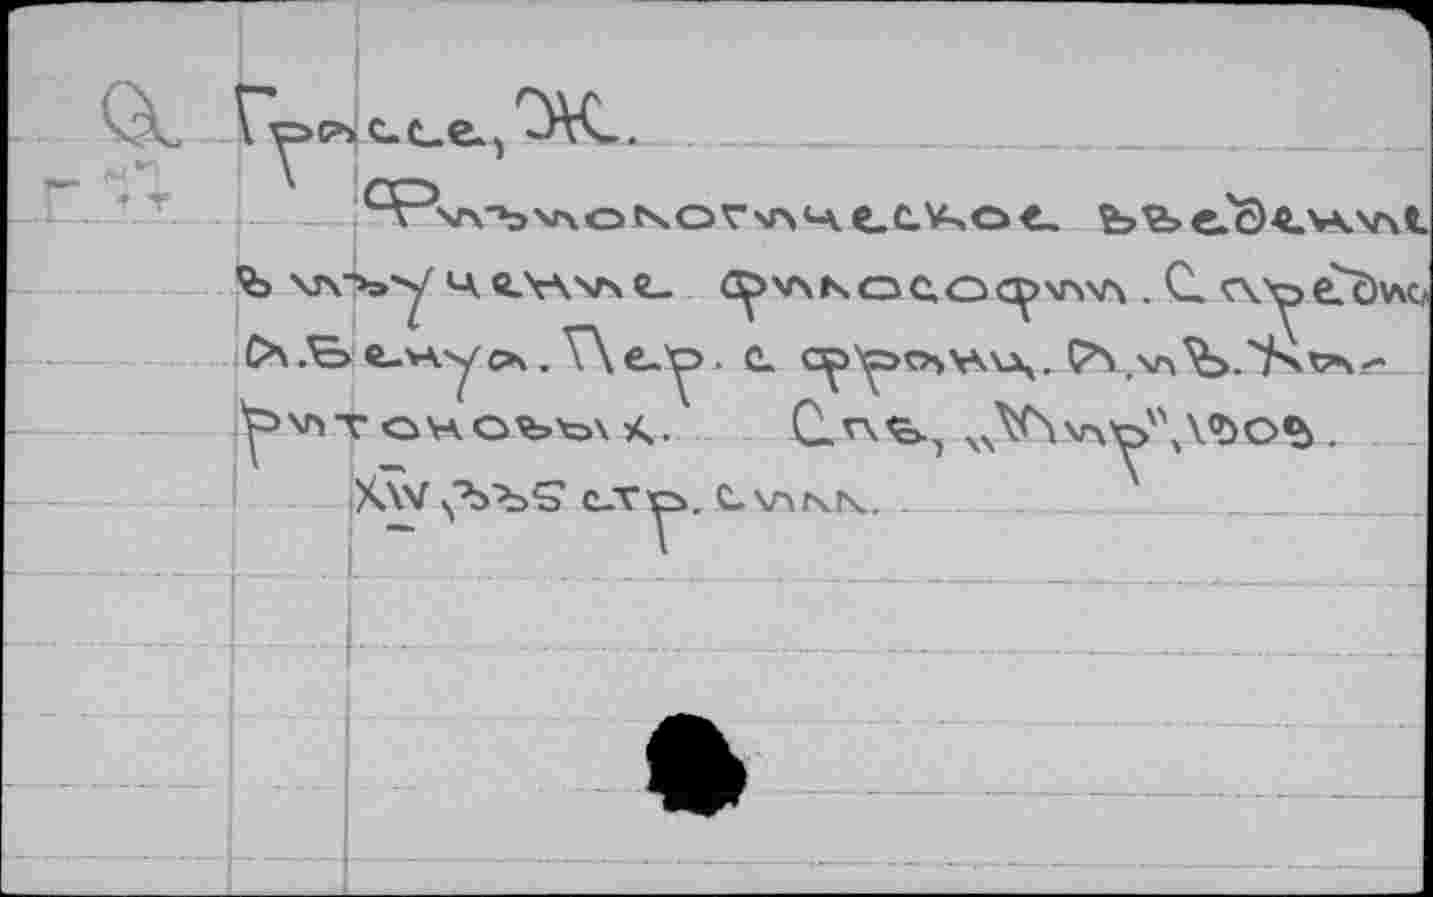 Q Грассе, Ж.
Г-77 Физиологическое введение
в изучение философии. С предис.
А.Бенуа. Пер. с француз. А. и В. Ха-
ритоновых. Спб., „Мир", 1909.
XIV, 335 стр. с илл.